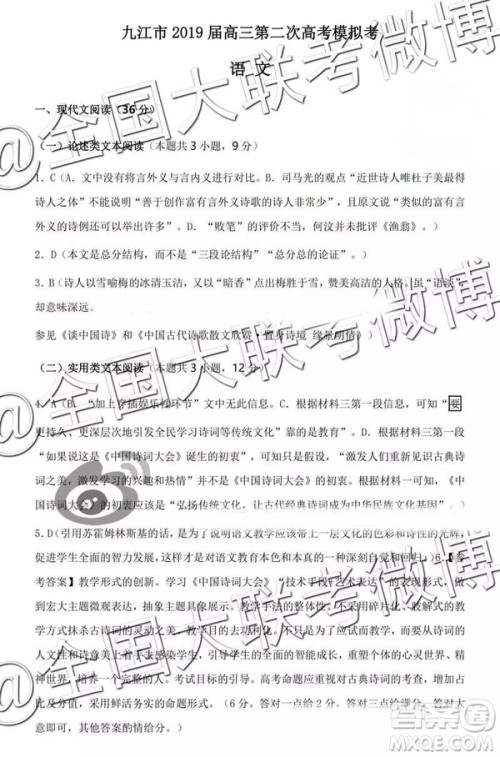 九江市 2019 届高三第二次高考模拟考
语 文
一、现代文阅读（36 分）
（一）论述类文本阅读（本题共 3 小题，9 分）
1．C（A．文中没有将言外义与言内义进行对比。B．司马光的观点“近世诗人唯杜子美最得
诗人之体”不能说明“善于创作富有言外义诗歌的诗人非常少”，且原文说“类似的富有言
外义的诗例还可以举出许多”。D．“败笔”的评价不当，何汶并未批评《渔翁》。）
2．D（本文是总分结构，而不是“三段论结构”“总分总的论证”。）
3．B（诗人以雪喻梅的冰清玉洁，又以“暗香”点出梅胜于雪，赞美高洁的人格。虽“语淡”
却意味深远。
参见《谈中国诗》和《中国古代诗歌散文欣赏·置身诗境 缘景明情》）
（二）实用类文本阅读（本题共 3 小题，12 分）
4．A（B．“加上穿插娱乐性环节”文中无此信息。C．根据材料三第一段信息，可知“要
更持久、更深层次地引发全民学习诗词等传统文化”靠的是教育”。D．根据材料三第一段
“如果说这是《中国诗词大会》诞生的初衷的话，可以看到，激发人们重新认识古典诗词
之美，激励人们追寻诗意生活，才是它更深远的意义。”根据材料一可知，《中国诗词大
会》诗词大会》的初衷应该是“弘扬传统文化，让古代经典诗词成为中华民族文化基因”。）
5．D(引用苏霍姆林斯基的话，是为了说明语文教学应该带上一层文化的色彩和诗性的光辉，
促进学生全面的发展，语文教师的反思，是针对语文教育本色和本真问题的自觉和自省) 6【参
考答案】教学形式的创新。学习《中国诗词大会》“技术手段+艺术表达”的表现形式，做
到宏大主题微观表达，抽象主题形象表达。教学方法的整体性。不采用碎片化、模块化教学
方式抹杀古诗词的灵动之美、蕴藉之美、整体之美。教学手段的主动性。更多地要从诗词的
人文性和诗意美上着手去感染学生，引导学生，达到育人的全面和整体功能，能唤醒学生对
诗歌的热爱，重拾诗意生活。高考命题应重视对古典诗词文化的考查，增大分值、占比，
采用鲜活务实的命题形式。（6 分。答对一点给 2 分，答对三点给满分。答对大
意即可，其他答案酌情给分。）
@全国大联考微博
@全国大联考微博
答案圈